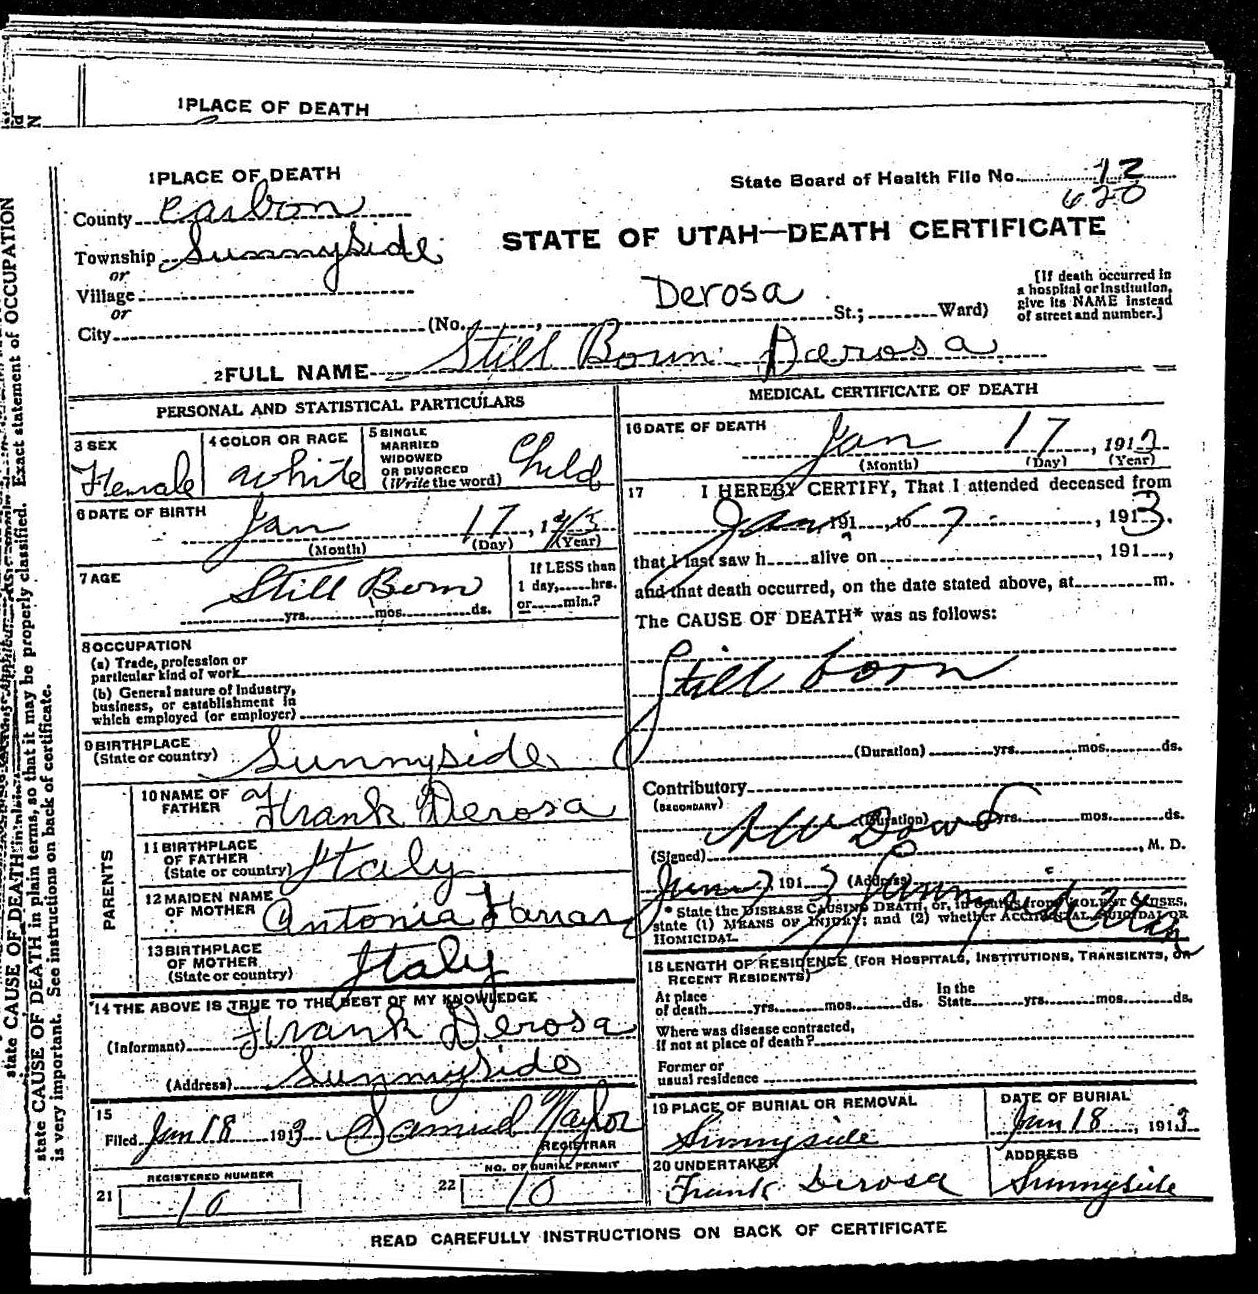 1PLACE OF DEATH
1PLACE OF DEATH
State Board of Health File No. 12
620
County Carbon
STATE OF UTAH—DEATH CERTIFICATE
Township Sunnyside
or
Village
or
Derosa
[If death occurred in
a hospital or institution,
give its NAME instead
of street and number.]
City (No. , St.; Ward)
2FULL NAME Still Born Derosa
PERSONAL AND STATISTICAL PARTICULARS
3 SEX
Female
4 COLOR OR RACE
white
5 SINGLE
MARRIED
WIDOWED
OR DIVORCED
(Write the word)
Child
6 DATE OF BIRTH
Jan 17, 1913
(Month) (Day) (Year)
7 AGE
Still Born
yrs. mos. ds.
If LESS than
1 day, hrs.
or min.?
8 OCCUPATION
(a) Trade, profession or
particular kind of work
(b) General nature of Industry,
business, or establishment in
which employed (or employer)
9 BIRTHPLACE
(State or country)
Sunnyside
PARENTS
10 NAME OF
FATHER
Frank Derosa
11 BIRTHPLACE
OF FATHER
(State or country)
Italy
12 MAIDEN NAME
OF MOTHER
Antonia
13 BIRTHPLACE
OF MOTHER
(State or country)
Italy
14 THE ABOVE IS TRUE TO THE BEST OF MY KNOWLEDGE
(Informant) Frank Derosa
(Address) Sunnyside
15
Filed Jan 18 1913 Samuel Naylor
REGISTRAR
21
REGISTERED NUMBER
10
22
NO. OF BURIAL PERMIT
10
MEDICAL CERTIFICATE OF DEATH
16 DATE OF DEATH
Jan 17, 1913
(Month) (Day) (Year)
17 I HEREBY CERTIFY, That I attended deceased from
Jan 191 , to 17 , 1913.
that I last saw h alive on , 191 ,
and that death occurred, on the date stated above, at m.
The CAUSE OF DEATH* was as follows:
Still born
(Duration) yrs. mos. ds.
Contributory
(SECONDARY)
(Duration) yrs. mos. ds.
(Signed) Dowd , M. D.
191 3 (Address) Sunnyside Utah
* State the DISEASE CAUSING DEATH, or, in deaths from VIOLENT CAUSES,
state (1) MEANS OF INJURY; and (2) whether ACCIDENTAL, SUICIDAL OR
HOMICIDAL.
18 LENGTH OF RESIDENCE (FOR HOSPITALS, INSTITUTIONS, TRANSIENTS, OR
RECENT RESIDENTS)
At place
of death yrs. mos. ds.
In the
State yrs. mos. ds.
Where was disease contracted,
if not at place of death?
Former or
usual residence
19 PLACE OF BURIAL OR REMOVAL
Sunnyside
DATE OF BURIAL
Jan 18, 1913
20 UNDERTAKER
Frank Derosa
ADDRESS
Sunnyside
READ CAREFULLY INSTRUCTIONS ON BACK OF CERTIFICATE
state CAUSE OF DEATH in plain terms, so that it may be properly classified. Exact statement of OCCUPATION
is very important. See instructions on back of certificate.